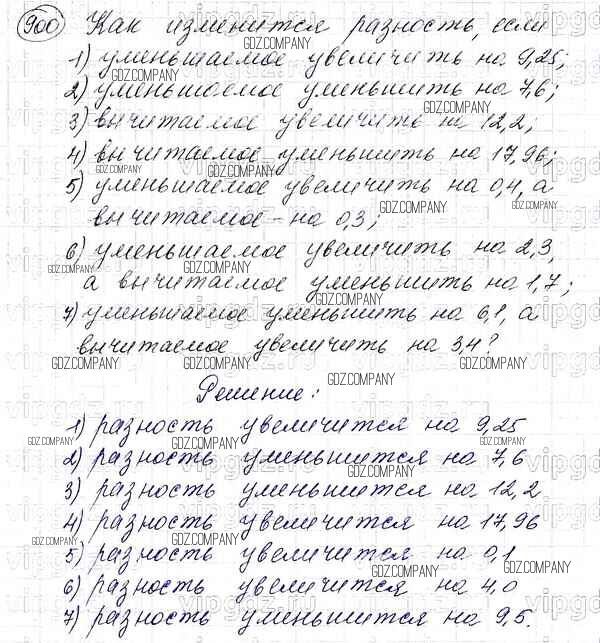 900 Как изменится разность, если
1) уменьшаемое увеличить на 9,25;
2) уменьшаемое уменьшить на 7,6;
3) вычитаемое увеличить на 12,2;
4) вычитаемое уменьшить на 17,96;
5) уменьшаемое увеличить на 0,4, а
вычитаемое - на 0,3;
6) уменьшаемое увеличить на 2,3,
а вычитаемое уменьшить на 1,7;
7) уменьшаемое уменьшить на 6,1, а
вычитаемое увеличить на 3,4?
Решение:
1) разность увеличится на 9,25
2) разность уменьшится на 7,6
3) разность уменьшится на 12,2
4) разность увеличится на 17,96
5) разность увеличится на 0,1
6) разность увеличится на 4,0
7) разность уменьшится на 9,5.